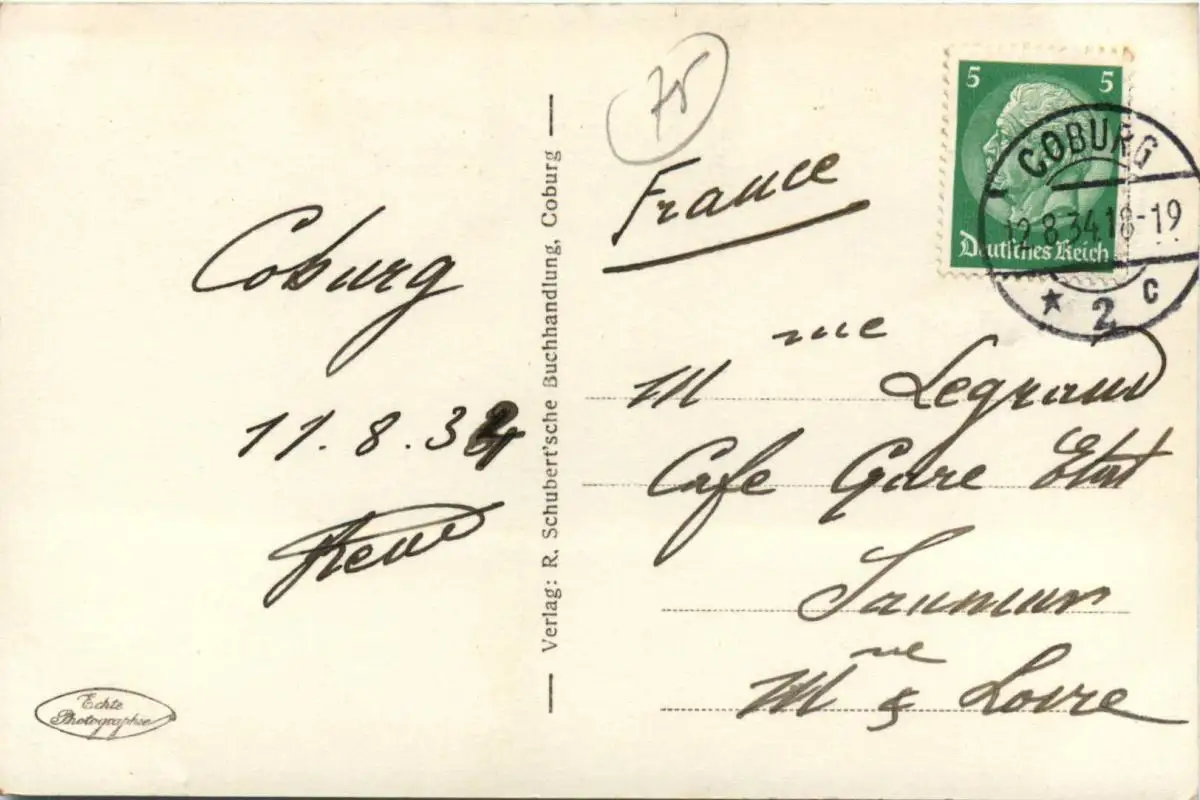 Coburg
11.8.34
René
Echte
Photographie
Verlag: R. Schubert'sche Buchhandlung, Coburg
75
France
5 5
Deutsches Reich
COBURG
12.8.34.18-19
* 2 c
Mme Legrand
Cafe Gare Etat
Saumur
Mne & Loire